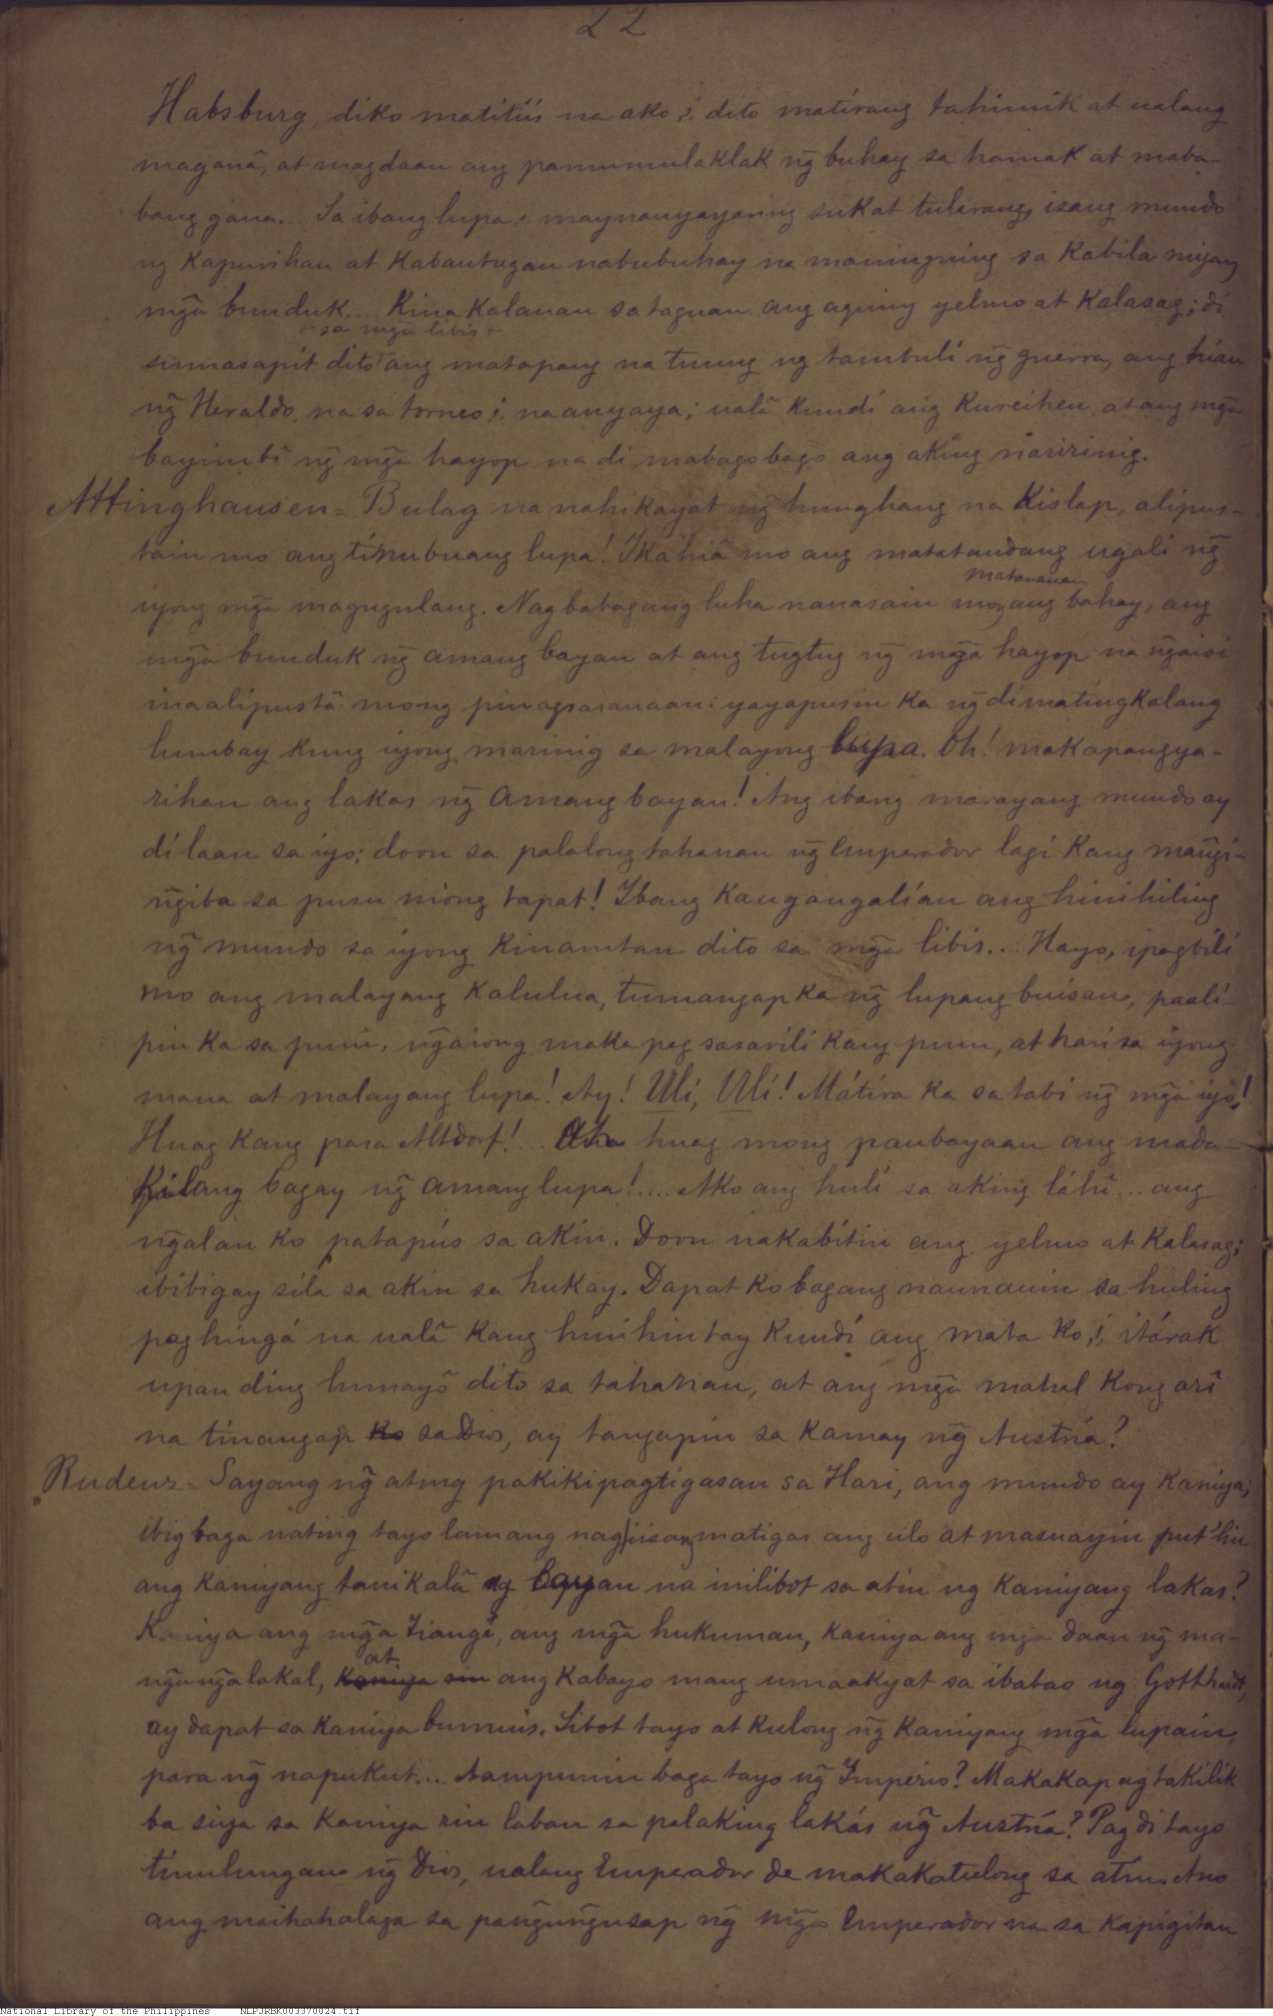 22
Habsburg, diko matitiis na ako,i, dito matirang tahimik at ualang
magauâ, at magdaan ang pamumulaklak ñg buhay sa hamak at maba-
bang gaua. Sa ibang lupa,i, maynangyayaring sukat tularang, isang mundo
ng kapurihan at kabantugan nabubuhay na maningning sa kabila niyang
mg̃a bunduk... Kinakalauan sa taguan ang aquing yelmo at kalasag; di
sa mg̃a libis
sumasapit dito ang matapang na tunug ng tambuli ñg guerra, ang hiau
ñg Heraldo, na sa torneo,i, naanyaya; ualâ kundi ang Kureihen, at ang mg̃a
bayimbî ñg mg̃a hayop na di mabagobago ang aking naririnig.
Attinghausen = Bulag na nahikayat ñg hunghang na kislap, alipus-
tain mo ang tinubuang lupa! Ikahiâ mo ang matatandang ugali ñg
iyong mg̃a magugulang. Nagbabagang luha nanasain mo, ang bahay, ang
matananau
mg̃a bunduk ñg amang bayan at ang tugtug ñg mg̃a hayop na ñgaioi
inaalipustâ mong pinagsasanaan: yayapusin ka ñg dimatingkalang
lumbay kung iyong marinig sa malayong lupa. Oh! makapangya-
rihan ang lakas ñg amang bayan! Ang ibang marayang mundo ay
di laan sa iyo; doon sa palalong tahanan ñg Emperador lagi kang mañgi-
ñgiba sa puso niong tapat! Ibang kaugaugalian ang hinihiling
ñg mundo sa iyong kinamtan dito sa mg̃a libis... Hayo, ipagbili
mo ang malayang kalulua, tumangap ka ñg lupang buisan, paali-
pin ka sa puni, ñgaiong makapagsasarili kang punu, at hari sa iyong
mana at malayang lupa! Ay! Uli, Uli! Mátira ka sa tabi ñg mg̃a iyó!
Huag kang pasa Altdorf!... Aha huag mong paubayaan ang mada-
kilang bagay ñg amang lupa!.... Ako ang huli sa aking láhî... ang
ñgalan ko patapús sa akin. Doon nakabitin ang yelmo at kalasag;
ibibigay sila sa akin sa hukay. Dapat ko bagang naunauin sa huling
paghingá na ualâ kang hinihintay kundi ang mata ko,i, itárak
upan ding humayô dito sa tahanan, at ang mg̃a mahal kong arî
na tinangap ko sa Dios, ay tangapin sa kamay ñg Austria?
Rudenz - Sayang ñg ating pakikipagtigasan sa Hari, ang mundo ay kaniya;
ibig baga nating tayo lamang nag iisang matigas ang ulo at masuayin put'hin
ang kaniyang tanikalâ ng bayan na inilibot sa atin ng kaniyang lakas?
Kaniya ang mg̃a tiangî, ang mg̃a hukuman, kaniya ang mga daan ñg ma-
at
ñgañgalakal, kaniya sin ang kabayo mang umaakyat sa ibabao ng Gotthardt,
ay dapat sa kaniya bumuis. Libot tayo at kulong ñg kaniyang mg̃a lupain,
para ñg napukut... Aampunin baga tayo ñg Imperio? Makakapagtakilik
ba siya sa kaniya rin laban sa palaking lakás ñg Austria? Pag di tayo
tinulungan ñg Dios, ualang Emperador de makakatulong sa atin. Ano
ang maihahalaga sa pañguñgusap ñg mg̃a Emperador na sa kapigitan
National Library of the Philippines NLPJRBK003370024.tif